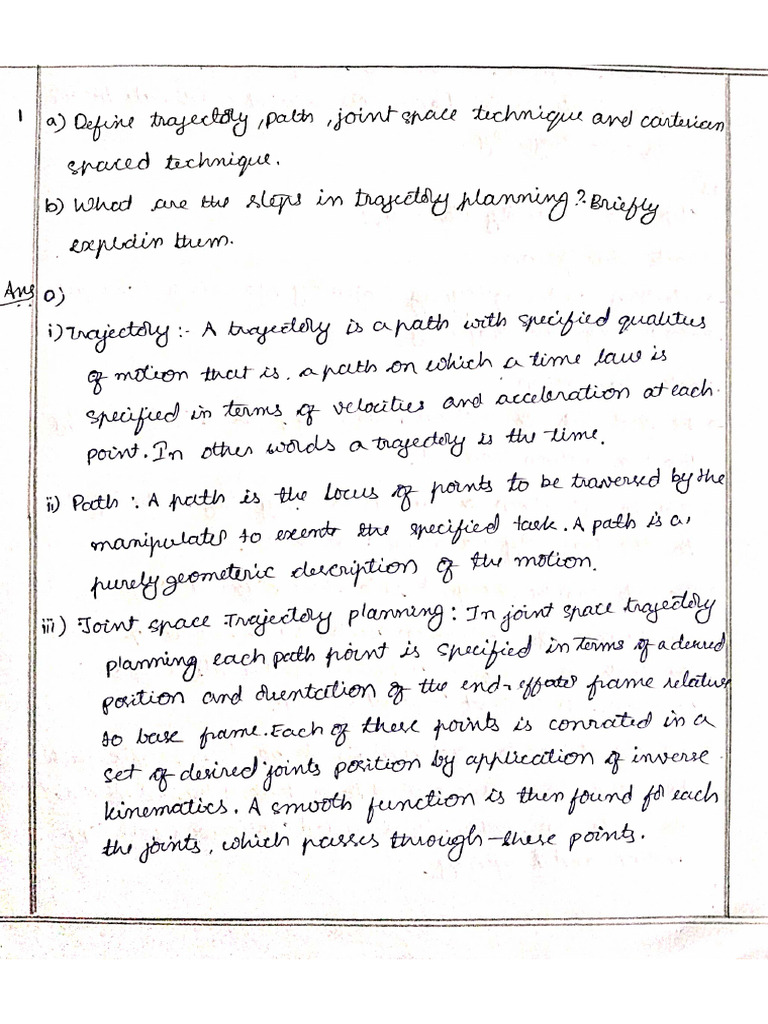 1 a) Define trajectory, path, joint space technique and cartesian
spaced technique.
b) What are the steps in trajectory planning? Briefly
explain them.
Ans a)
i) Trajectory :- A trajectory is a path with specified qualities
of motion that is, a path on which a time law is
specified in terms of velocities and acceleration at each
point. In other words a trajectory is the time.
ii) Path : A path is the locus of points to be traversed by the
manipulator to execute the specified task. A path is a
purely geometeric description of the motion.
iii) Joint space Trajectory planning : In joint space trajectory
planning each path point is specified in terms of a desired
position and orientation of the end-effator frame relative
to base frame. Each of these points is conrated in a
set of desired joints position by application of inverse
kinematics. A smooth function is then found for each
the joints, which passes through these points.